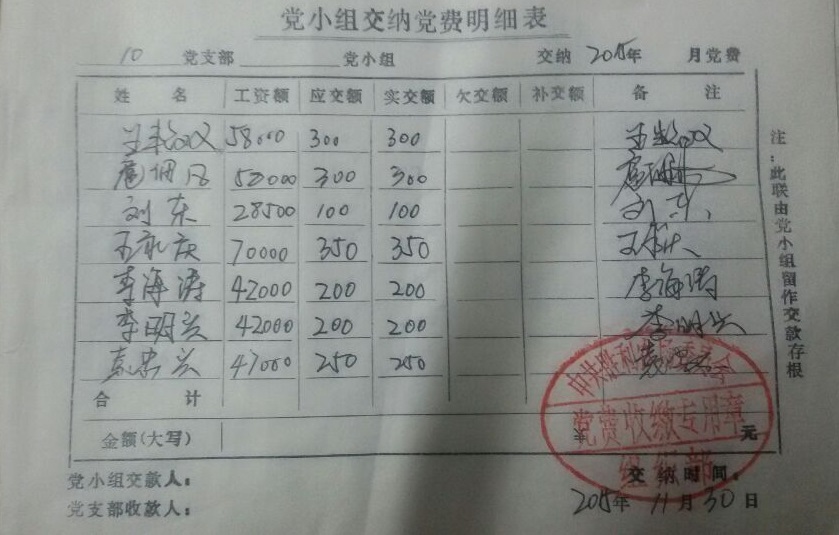 党小组交纳党费明细表
10 党支部 党小组 交纳 2015年 月党费
姓 名 工资额 应交额 实交额 欠交额 补交额 备 注
58000 300 300
52000 300 300
刘东 28500 100 100 刘东
王永庆 70000 350 350
李海涛 42000 200 200 李海涛
李明兴 42000 200 200 李明兴
袁忠兴 47000 250 250
合 计
金额(大写) ¥ 元
党小组交款人: 交纳时间:
党支部收款人: 2015年 11月30日
注:此联由党小组留作交款存根
党费收缴专用章
组织部